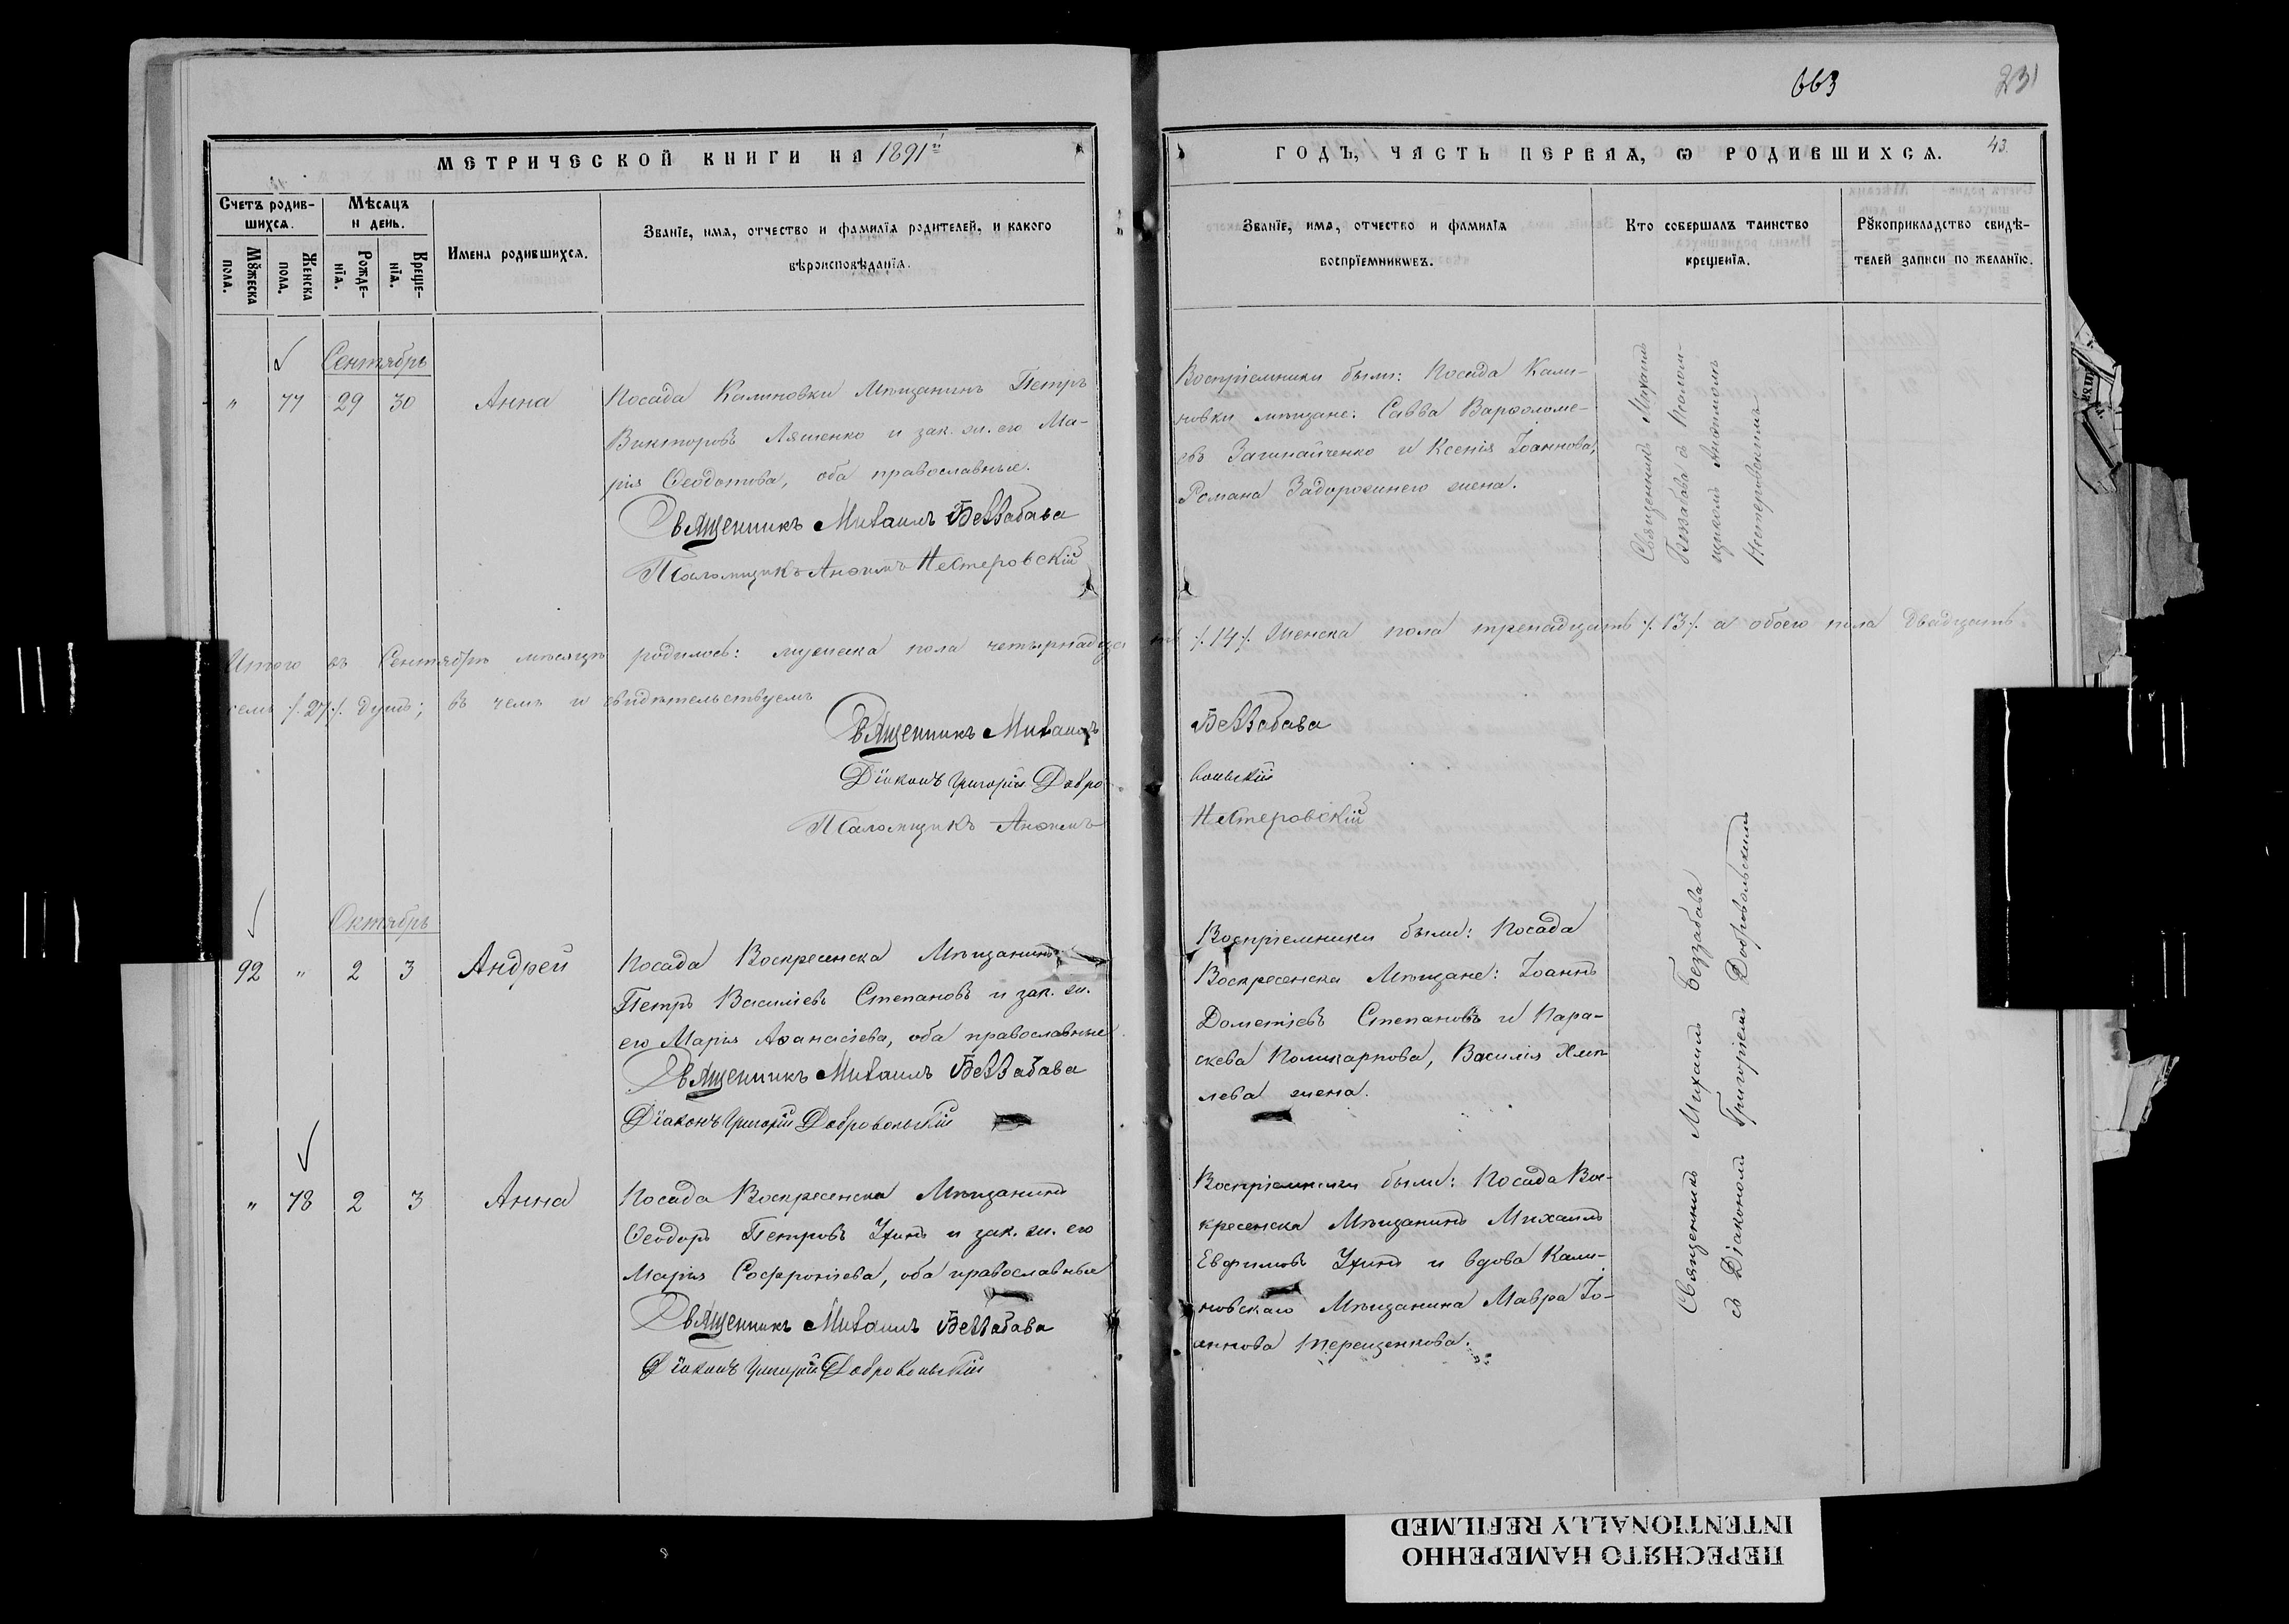 663
231
МЕТРИЧЕСКОЙ КНИГИ НА 1891й
ГОДЪ, ЧАСТЬ ПЕРВАѦ, Ѡ РОДИВШИХСѦ.
43.
Счетъ родив-
шихсѧ.
Мꙋжеска
пола.
Женска
пола.
Мѣсѧцъ
и день.
Рожде-
нїѧ.
Креще-
нїѧ.
Имена родившихсѧ.
Званїе, имѧ, отчество и фамилїѧ родителей, и какого
вѣроисповѣданїѧ.
Званїе, имѧ, отчество и фамилїѧ
воспрїемникѡвъ.
Кто совершалъ таинство
крещенїѧ.
Рꙋкоприкладство свидѣ-
телей записи по желанїю.
Сентябрь
" 77 29 30 Анна
Посада Калиновки Мѣщанинъ Петръ
Викторовъ Ляшенко и зак. ж. его Ма-
рія Ѳеодотова, оба православные.
Священникъ Михаилъ Беззабава
Псаломщикъ Анѳимъ Нестеровскій
Воспріемники были: Посада Кали-
новки мѣщане: Савва Варѳоломе-
евъ Загинайченко и Ксенія Іоаннова,
Романа Задорожнего жена.
Священникъ Михаилъ
Беззабава съ Псалом-
щикомъ Анѳимомъ
Нестеровскимъ
Итого въ Сентябрѣ мѣсяцѣ родилось: мужеска пола четырнадца ть /.14/. Женска пола тренадцать /.13/. а обоего пола двадцать
семь /.27/. душъ; въ чемъ и свидѣтельствуемъ
Священникъ Михаилъ Беззабава
Діаконъ Григорій Добро вольскій
Псаломщикъ Анѳимъ Нестеровскій
Октябрь
92 " 2 3 Андрей
Посада Воскресенска Мѣщанинъ
Петръ Василіевъ Степановъ и зак. ж.
его Марія Аѳанасіева, оба православные
Священникъ Михаилъ Беззабава
Діаконъ Григорій Добровольскій
Воспріемники были: Посада
Воскресенска Мѣщане: Іоаннъ
Дометіевъ Степановъ и Пара-
скева Поликарпова, Василія Хмы
лева жена.
" 78 2 3 Анна
Посада Воскресенска Мѣщанинъ
Ѳеодоръ Петровъ и зак. ж. его
Марія Софроніева, оба православные
Священникъ Михаилъ Беззабава
Діаконъ Григорій Добровольскій
Воспріемники были: Посада Вос-
кресенска Мѣщанинъ Михаилъ
Евфимовъ и вдова Кали-
новскаго Мѣщанина Мавра Іо-
аннова Терещенкова.
Священникъ Михаилъ Беззабава
съ Діакономъ Григоріемъ Добровольскимъ
ПЕРЕСНЯТО НАМЕРЕННО
INTENTIONALLY REFILMED